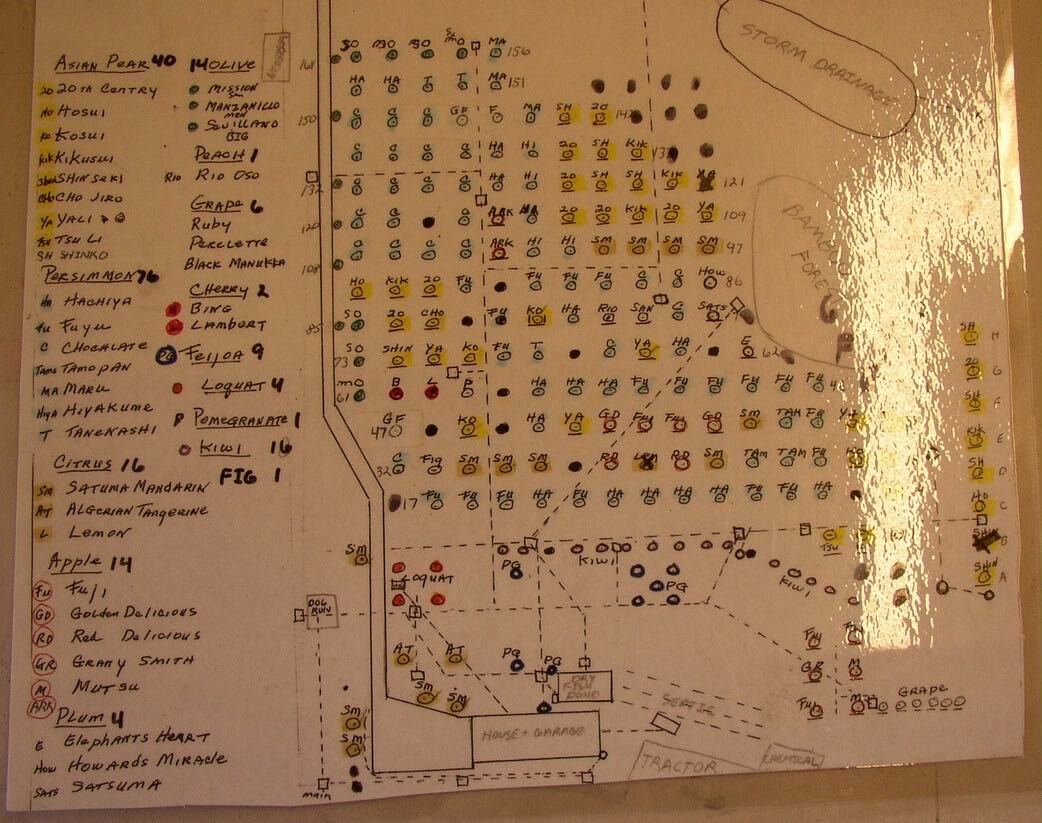 ASIAN PEAR 40
20 20TH CENTRY
HO HOSUI
KO KOSUI
KIK KIKUSUI
SHIN SEKI
CHO CHO JIRO
YA YALI
TSU TSU LI
SH SHINKO
PERSIMMON 76
HA HACHIYA
FU FUYU
C CHOCALATE
TAMO TAMOPAN
MA MARU
HIYA HIYAKUME
T TANENASHI
CITRUS 16
SM SATUMA MANDARIN
AT ALGERIAN TANGERINE
L LEMON
APPLE 14
FU FUJI
GD GOLDEN DELICIOUS
RD RED DELICIOUS
GR GRANY SMITH
M MUTSU
ARK
PLUM 4
E ELEPHANTS HEART
HOW HOWARDS MIRACLE
SATS SATSUMA
14 OLIVE
MISSION
SM
MANZANILLO
MED
SEVILLANO
BIG
PEACH 1
RIO RIO OSO
GRAPE 6
RUBY
PERLETTE
BLACK MANUKKA
CHERRY 2
B BING
L LAMBERT
FEIJOA 9
LOQUAT 4
P POMEGRANATE 1
KIWI 16
FIG 1
STORM DRAINAGE
BAMBOO
FOREST
SO MO SO MO MA 156
161
HA HA T T MA 151
150 C C C GF F MA SH 20 142
C C C C HA HI 20 SH KIK 133
132 C C C C HA HI 20 SH SH KIK YA 121
120 C C C ARK MA 20 20 KIK 20 YA 109
C C C C ARK HI HI SM SM SM SM 97
108
HO KIK 20 FU FU FU FU C C HOW 86
85 SO 20 CHO FU KO HA RIO SAN C SATS
73 SO SHIN YA KO FU T C YA HA E 62
61 MO B L P HA HA HA FU FU FU FU FU
47 GF KO HA YA GD FU FU GD SM TAM FU
32 C FIG SM SM SM RD RD SM TAM TAM FU KO
17 FU FU FU HA FU HA HA HA HA FU FU FU
SH H
20 G
SH F
KIK E
SH D
HO C
SHIN B
SHIN A
SM
LOQUAT
PG
KIWI
PG
KIWI
TSU
DOG
RUN
AT AT
PG PG
SM SM
SM
SM
DRY
FISH
POND
HOUSE + GARAGE
SEPTIC
TRACTOR
CHEMICAL
FU FU
GR M
FU M
GRAPE
MAIN